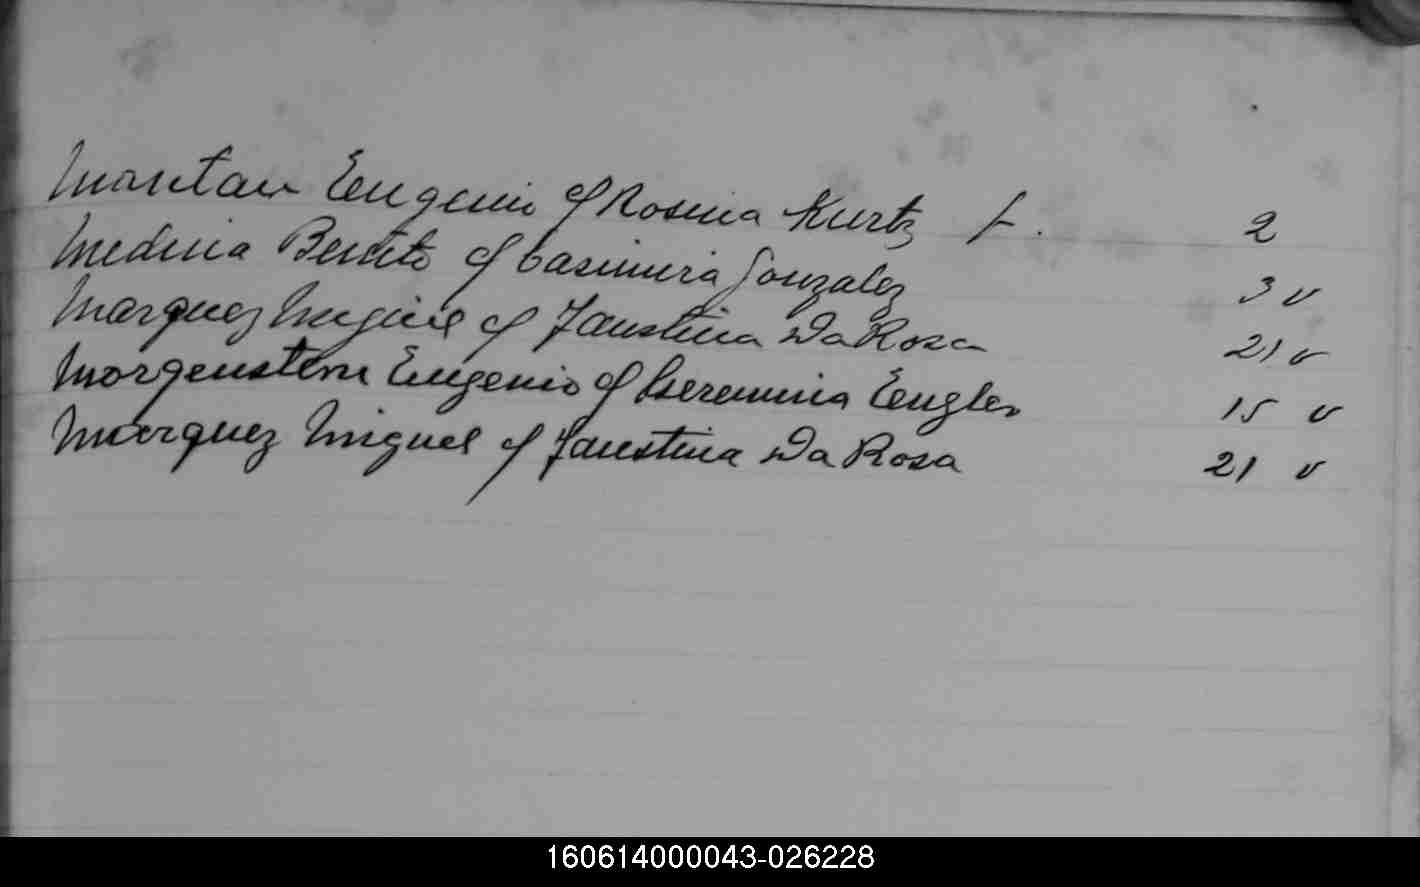 Montau Eugenio cf Rosina Kurtz f. 2
Medina Benito cf Casimira Gonzalez 3 v
Marquez Miguel cf Faustina Da Rosa 21 v
Morgenstern Eugenio cf Geremina Eengler 15 v
Marquez Miguel cf Faustina Da Rosa 21 v
160614000043-026228